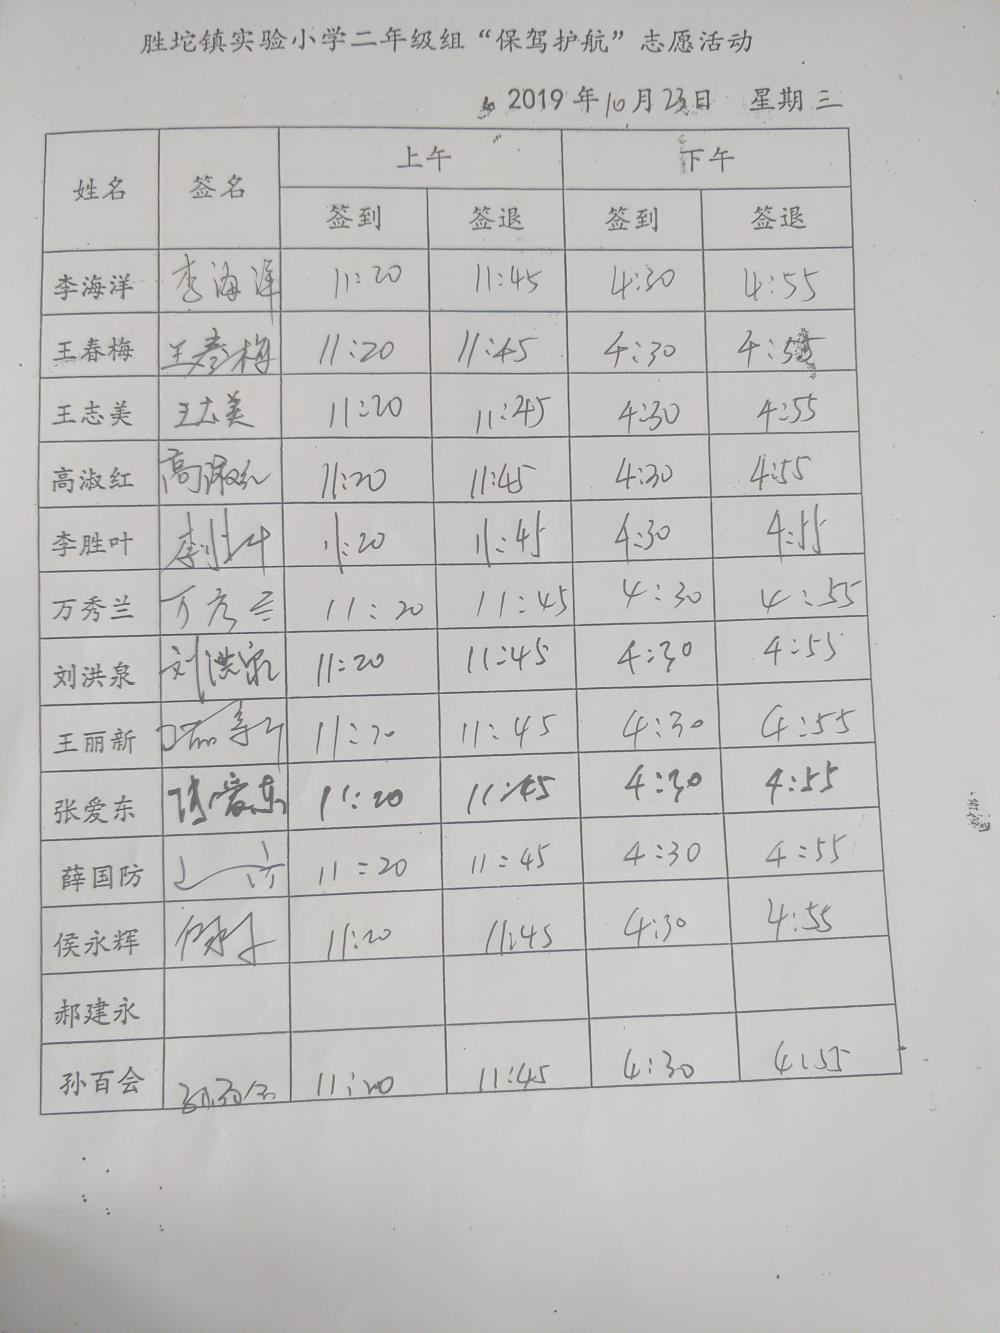 胜坨镇实验小学二年级组“保驾护航”志愿活动
2019年10月23日 星期三
姓名 签名 上午 下午
签到 签退 签到 签退
李海洋 李海洋 11:20 11:45 4:30 4:55
王春梅 王春梅 11:20 11:45 4:30 4:55
王志美 王志美 11:20 11:45 4:30 4:55
高淑红 高淑红 11:20 11:45 4:30 4:55
李胜叶 李胜叶 11:20 11:45 4:30 4:55
万秀兰 万秀兰 11:20 11:45 4:30 4:55
刘洪泉 刘洪泉 11:20 11:45 4:30 4:55
王丽新 王丽新 11:20 11:45 4:30 4:55
张爱东 张爱东 11:20 11:45 4:30 4:55
薛国防 11:20 11:45 4:30 4:55
侯永辉 11:20 11:45 4:30 4:55
郝建永
孙百会 孙百会 11:20 11:45 4:30 4:55